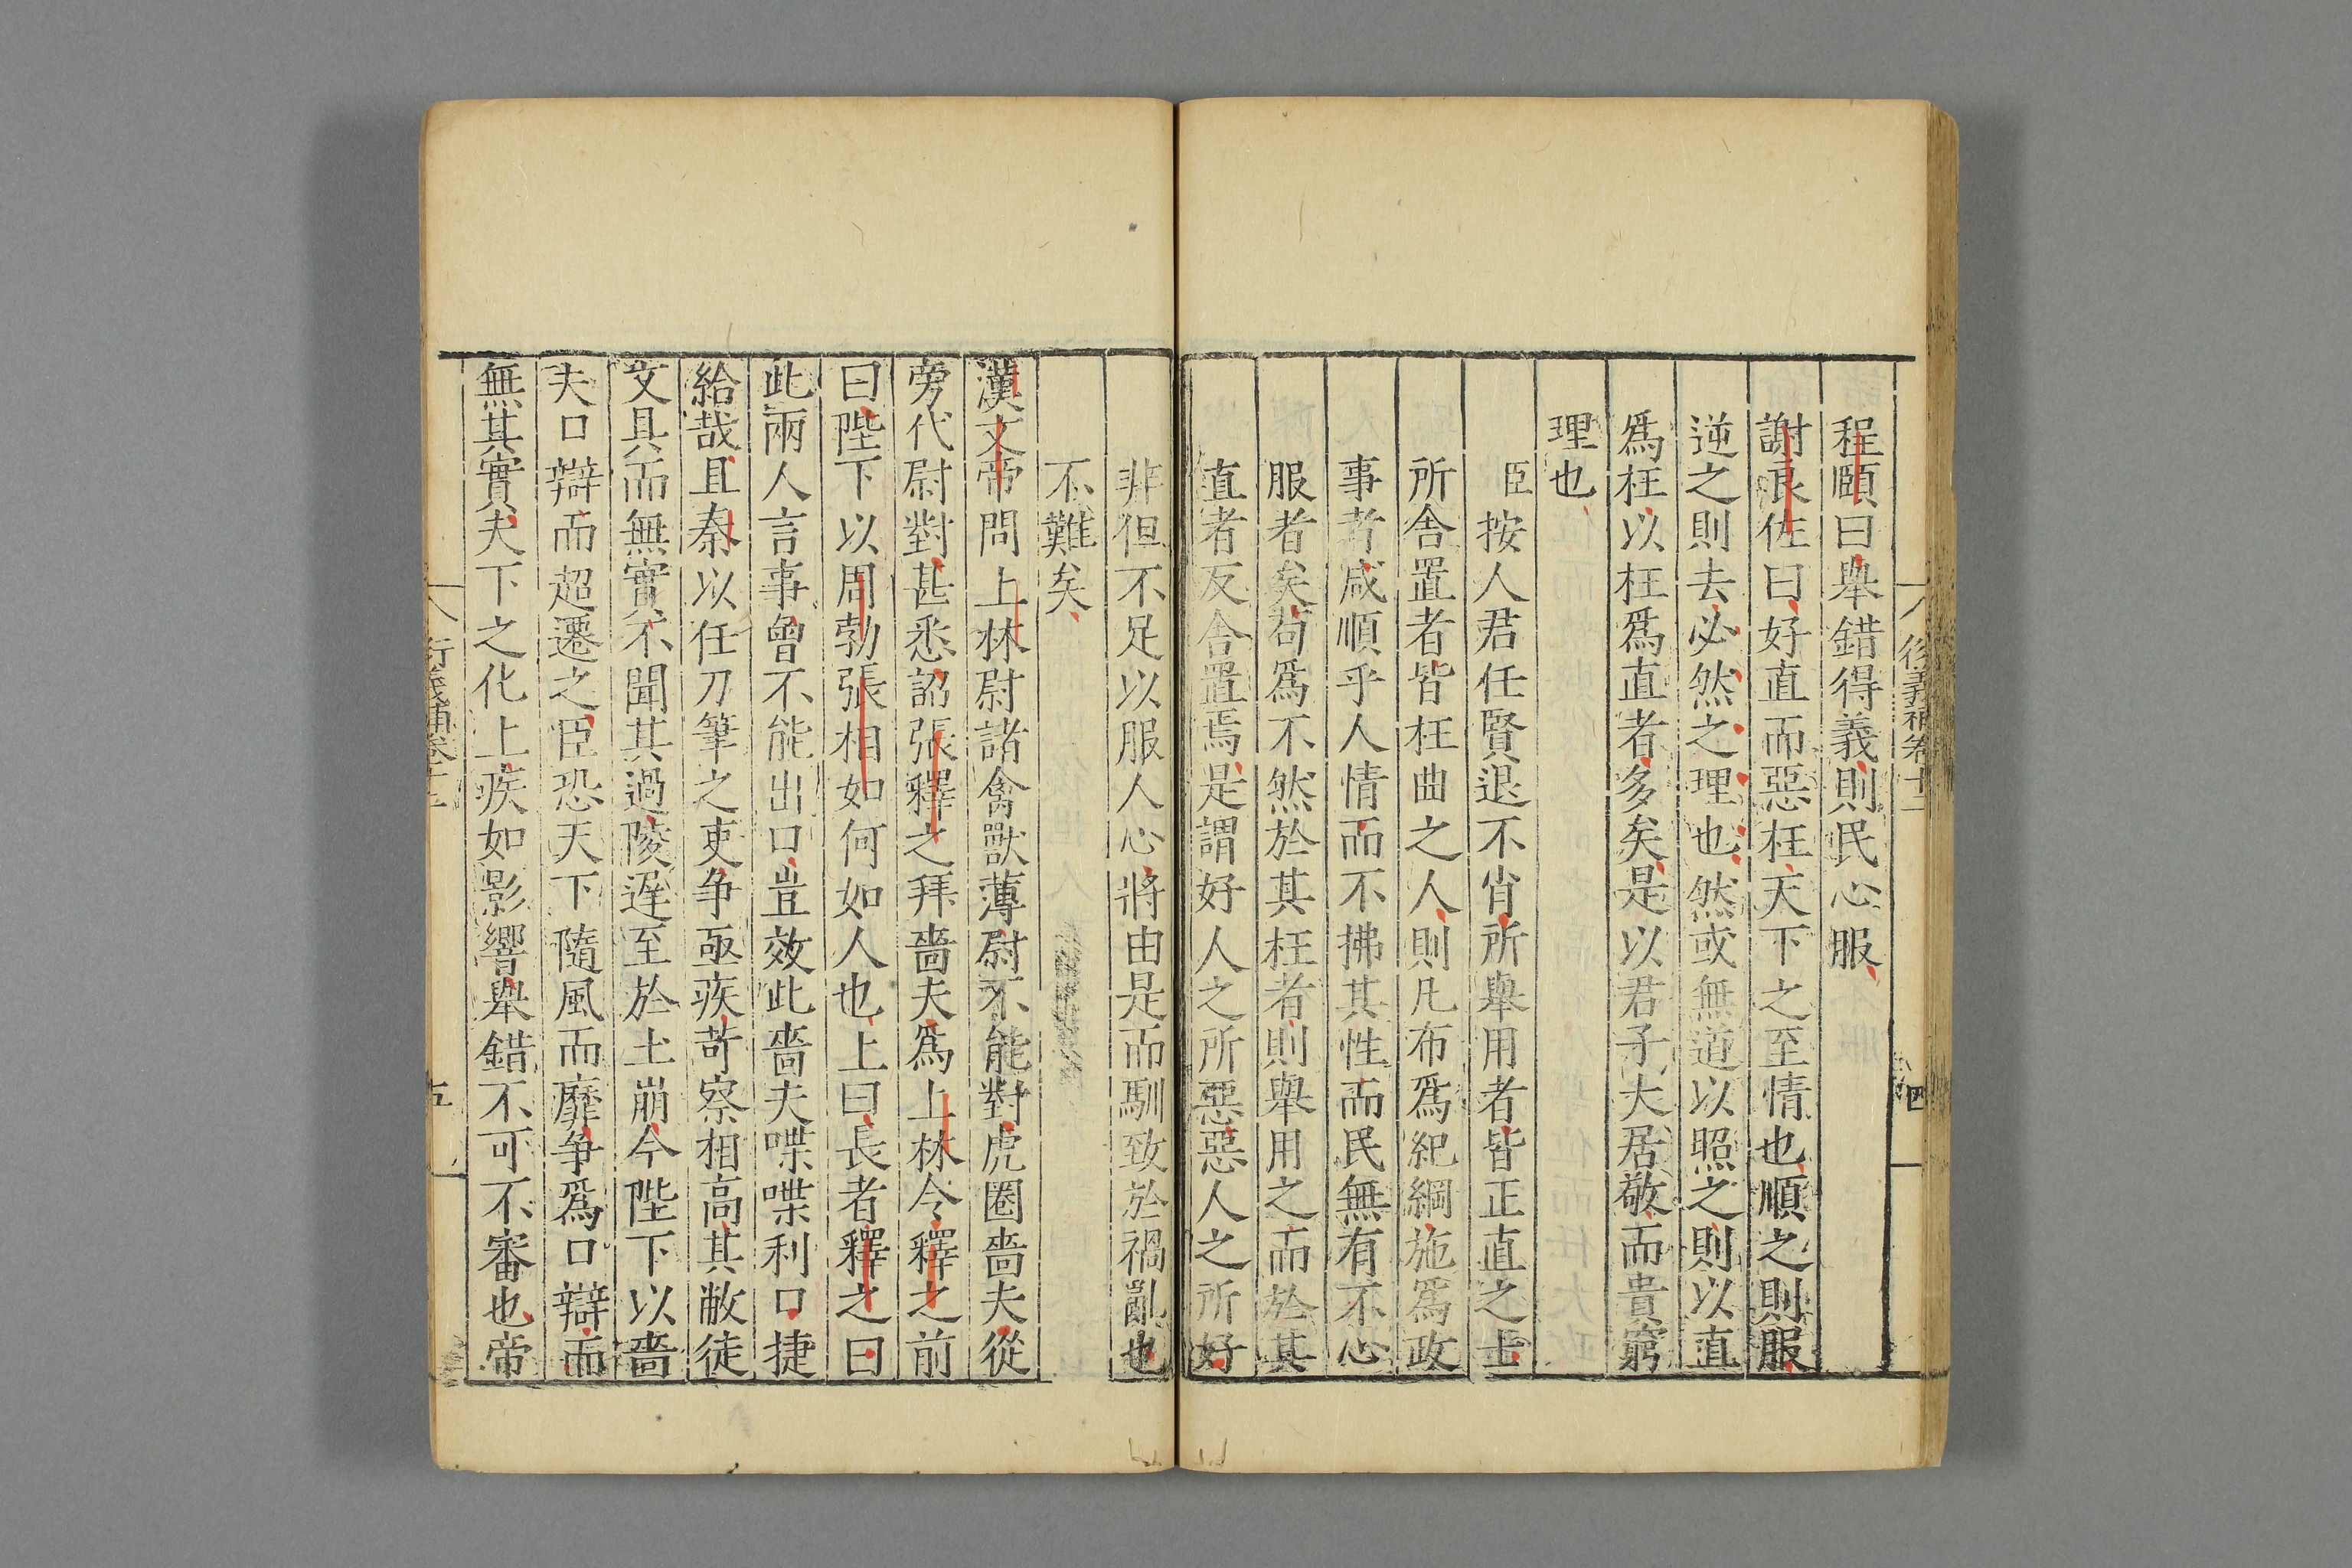 衍義補卷十一
四
程頤曰舉錯得義則民心服
謝良佐曰好直而惡枉天下之至情也順之則服
逆之則去必然之理也然或無道以照之則以直
爲枉以枉爲直者多矣是以君子大居敬而貴窮
理也
臣按人君任賢退不肖所舉用者皆正直之士
所舍置者皆枉曲之人則凡布爲紀綱施爲政
事者咸順乎人情而不拂其性而民無有不心
服者矣茍爲不然於其枉者則舉用之而於其
直者反舍置焉是謂好人之所惡惡人之所好
非但不足以服人心將由是而馴致於禍亂也
不難矣
漢文帝問上林尉諸禽獸薄尉不能對虎圈嗇夫從
旁代尉對甚悉詔張釋之拜嗇夫爲上林令釋之前
曰陛下以周勃張相如何如人也上曰長者釋之曰
此兩人言事曾不能出口豈效此嗇夫喋喋利口捷
給哉且秦以任刀筆之吏争亟疾苛察相高其敝徒
文具而無實不聞其過陵遲至於土崩今陛下以嗇
夫口辯而超遷之臣恐天下隨風而靡争爲口辯而
無其實夫下之化上疾如影響舉錯不可不審也帝
衍義補卷十一
五